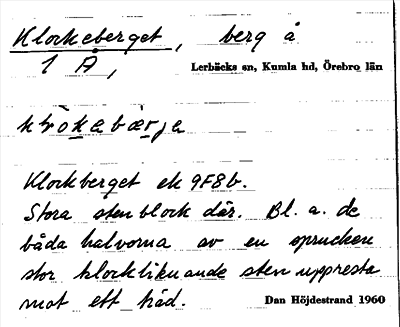 Klockeberget, berg å
1 Å, Lerbäcks sn, Kumla hd, Örebro län
Klockberget ek 9F8b.
Stora stenblock där. Bl. a. de
båda halvorna av en sprucken
stor klockliknande sten uppresta
mot ett träd.
Dan Höjdestrand 1960